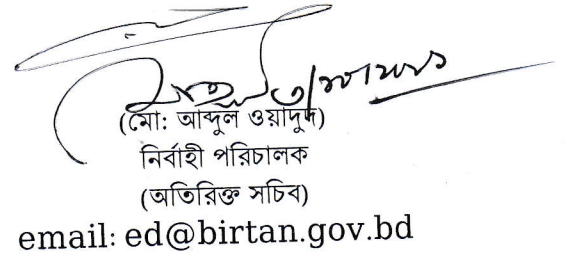 (মো: আব্দুল ওয়াদুদ)
নির্বাহী পরিচালক
(অতিরিক্ত সচিব)
email: ed@birtan.gov.bd